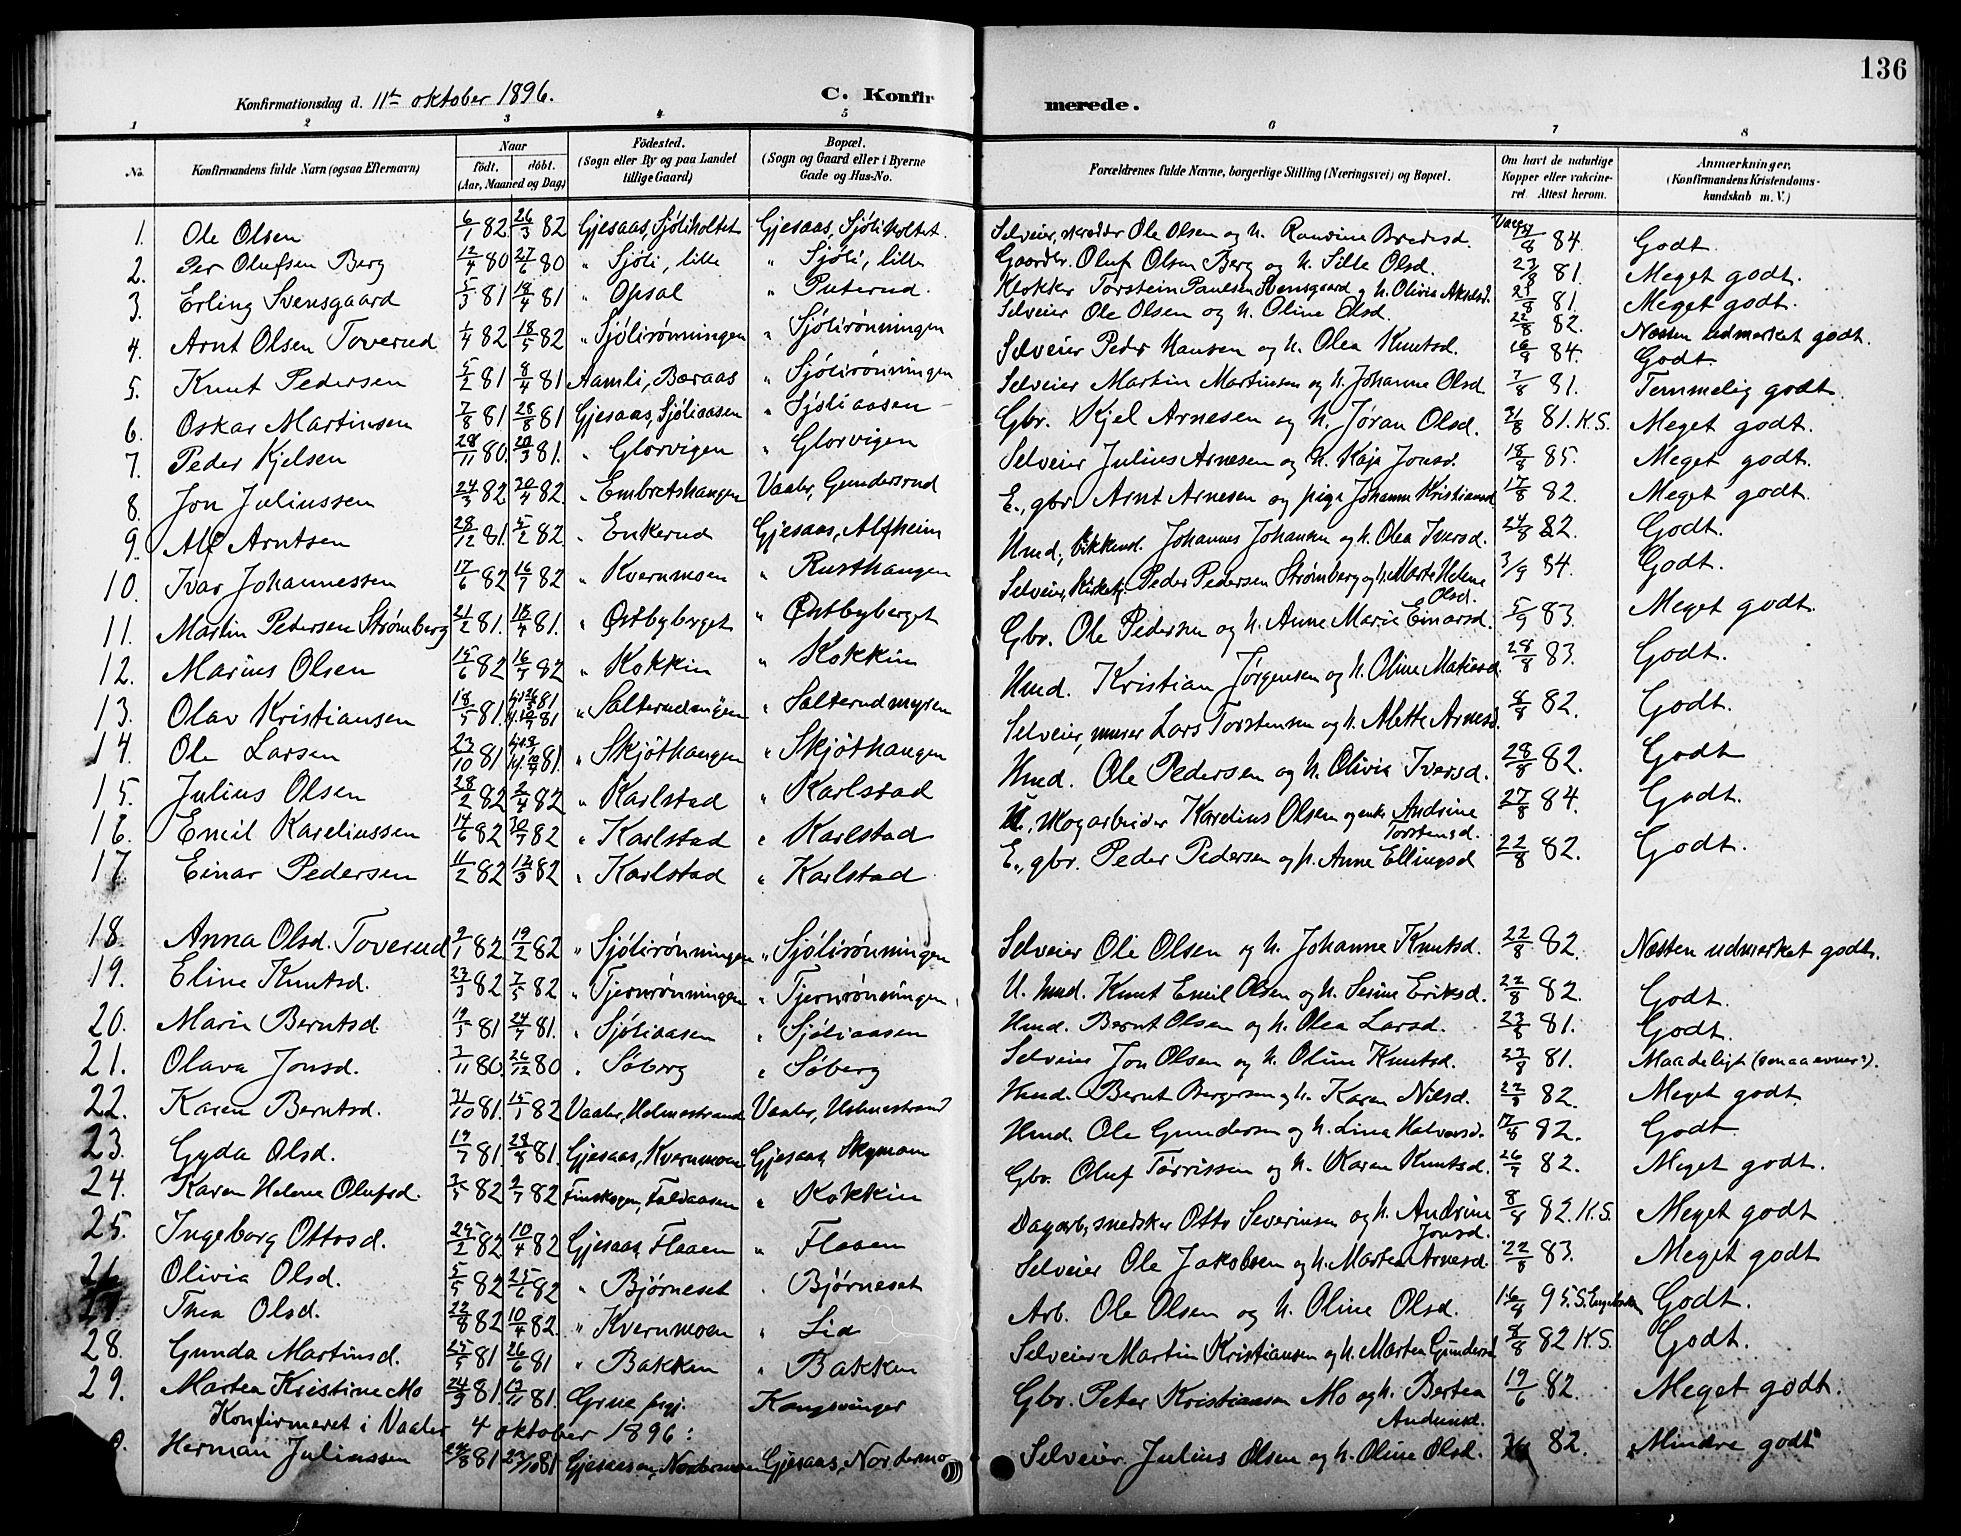 136
Konfirmationsdag d. 11te oktober 1896.
C. Konfirmerede.
1 2 3 4 5 6 7 8
No.
Konfirmandens fulde Navn (ogsaa Efternavn)
Naar
født. døbt.
(Aar, Maaned og Dag)
Fødested.
(Sogn eller By og paa Landet tillige Gaard)
Bopæl.
(Sogn og Gaard eller i Byerne Gade og Hus-No.
Forældrenes fulde Navne, borgerlige Stilling (Næringsvei) og Bopæl.
Om havt de naturlige Kopper eller vakcineret. Attest herom.
Anmærkninger,
(Konfirmandens Kristendomskundskab m. V.)
1. Ole Olsen 6/1 82. 26/3 82 Gjesaas, Sjöliholtet Gjesaas, Sjöliholtet. Selveier, skrædder Ole Olsen og h. Randine Bredesd. 84. Godt.
2. Per Olufsen Berg 12/4 80 27/6 80 " Sjöli, lille " Sjöli, lille Gaardbr. Oluf Olsen Berg og h. Sille Olsd. 23/8 81. Meget godt.
3. Erling Svensgaard 5/3 81 18/4 81 " Opsal " Puterud. Klokker Torstein Paulsen Svensgaard og h. Olivia Akselsd. 81. Meget godt.
4. Arnt Olsen Toverud 1/4 82 18/5 82 " Sjölirönningen " Sjölirönningen Selveier Ole Olsen og h. Oline Elsd. 22/8 82. Næsten udmerket godt.
5. Knut Pedersen 5/2 81 8/4 81 Aamli, Baraas " Sjölirönningen Selveier Peder Hansen og h. Olea Knutsd. 16/9 84. Godt.
6. Oskar Martinsen 7/8 81 28/8 81 Gjesaas, Sjöliaasen " Sjöliaasen Selveier Martin Martinsen og h. Johanne Olsd 7/8 81. Temmelig godt.
7. Peder Kjelsen 28/11 80. 20/3 81. " Glorvigen " Glorvigen Gbr. Kjel Arnesen og h. Jøran Olsd. 31/8 81. K.S. Meget godt.
8. Jon Juliussen 24/3 82 30/4 82. " Embretshaugen Vaaler, Gundersrud Selveier Julius Arnesen og h. Kaja Jonsd. 18/8 85. Meget godt.
9. Alf Arntsen 28/12 81. 5/2 82. " Enkerud Gjesaas, Alfheim E., gbr. Arnt Arnesen og pige Johanne Kristiansd 17/8 82. Meget godt.
10. Ivar Johannessen 17/6 82 16/7 82 " Kvernmoen " Rusthaugen Hmd., Johannes Johansen og h. Olea Iversd. 24/8 82. Godt.
11. Martin Petersen Strømberg 21/2 81. 18/4 81. " Østbyberget " Østbyberget Selveier, Peder Pedersen Strømberg og h. Marte Helene Olsd. 3/9 84. Godt.
12. Marius Olsen 15/6 82 16/7 82 " Kokkin " Kokkin Gbr. Ole Pedersen og h. Anne Marie Einarsd. 5/9 83. Meget godt.
13. Olav Kristiansen 18/5 81. 81 81 " Salterudmyren " Salterudmyren Hmd. Kristian Jørgensen og h. Oline Matiasd. 28/8 83. Godt.
14. Ole Larsen 23/10 81 81. " Skjöthaugen " Skjöthaugen Selveier, murer Lars Torstensen og h. Alette Arnesd. 8/8 82. Godt.
15. Julius Olsen 28/2 82 2/4 82 " Karlstad " Karlstad Hmd. Ole Pedersen og h. Olivia Iversd. 28/8 82. Godt
16. Emil Kareliussen 14/6 82 30/7 82 " Karlstad " Karlstad Skogarbeider Karelius Olsen og enke Andrine Torstensd. 27/8 84. Godt.
17 Einar Pedersen 11/2 82 12/3 82 " Karlstad " Karlstad E., gbr. Peder Pedersen og p. Anne Ellingsd 22/8 82. Godt.
18. Anna Olsd. Toverud 9/1 82 19/2 82 " Sjölirönningen " Sjölirönningen Selveier Ole Olsen og h. Johanne Knutsd. 22/8 82. Næsten udmerket godt.
19. Eline Knutsd. 23/3 82 7/5 82 " Tjernrönningen " Tjernrönningen. U. hmd. Knut Emil Olsen og h. Serine Eriksd. 22/8 82. Godt.
20. Marie Berntsd. 19/5 81 24/7 81. " Sjöliaasen " Sjöliaasen Hmd. Bernt Olsen og h. Olea Larsd. 23/8 81. Godt.
21. Olava Jonsd. 3/11 80. 26/12 80 " Söberg " Söberg Selveier Jon Olsen og h. Oline Knutsd. 23/8 81. Maadeligt (smaa evner).
22. Karen Berntsd. 31/10 81. 15/1 82 Vaaler, Holmestrand Vaaler, Holmestrand Hmd. Bernt Bergersen og h. Karen Nilsd. 82. Meget godt.
23. Gyda Olsd. 19/7 81. 28/8 81. Gjesaas, Kvernmoen Gjesaas, Skymoen Hmd. Ole Gundersen og h. Lina Halvorsd. 17/8 82. Godt
24. Karen Helene Olufsd. 82 82 Finskogen, Faldaasen " Kokkin Gbr. Oluf Törrissen og h. Karen Knutsd. 26/7 82. Meget godt.
25. Ingeborg Ottosd. 25/2 82 10/4 82 Gjesaas, Flaaen " Flaaen Dagarb., snedker Otto Severinsen og h. Andrine Jonsd. 8/8 82. K.S. Meget godt
Olivia Olsd. 5/5 82 25/6 82 " Björneset " Björneset Selveier Ole Jakobsen og h. Martea Arnesd. 22/8 83. Meget godt
Thea Olsd. 82 10/4 82. " Kvernmoen " Lia Arb. Ole Olsen og h. Oline Olsd. 16/4 95. Godt.
28. Gunda Martinsd. 25/5 81 26/6 81 " Bakken " Bakken Selveier Martin Kristiansen og h. Martea Gundersd 8/8 82 K.S. Godt.
29. Martea Kristine Mo 24/9 81. 13/11 81. Grue prgj. Kongsvinger Gbr. Peter Kristiansen Mo og h. Bertea Andersd. 19/6 82. Meget godt.
Konfirmeret i Vaaler 4 oktober 1896:
Herman Juliussen 81 23/10 81 Gjesaasen, Nordermoen Gjesaas, Nordermo Selveier Julius Olsen og h. Oline Olsd. 82. "Mindre godt"